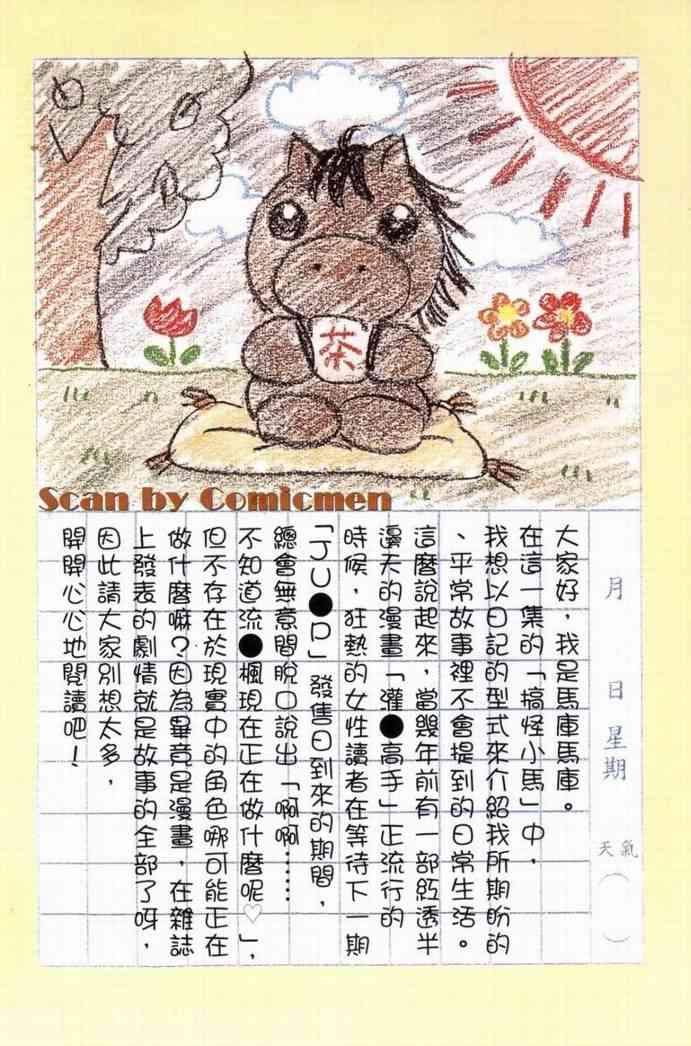 茶
Scan by Comicmen
月 日 星期
天氣（ ）
大家好，我是馬庫馬庫。
在這一集的「搞怪小馬」中，
我想以日記的型式來介紹我所期盼的
、平常故事裡不會提到的日常生活。
這麼說起來，當幾年前有一部紅透半
邊天的漫畫「灌●高手」正流行的
時候，狂熱的女性讀者在等待下一期
「JU●P」發售日到來的期間，
總會無意間脫口說出「啊啊……
不知道流●楓現在正在做什麼呢♡」，
但不存在於現實中的角色哪可能正在
做什麼嘛？因為畢竟是漫畫，在雜誌
上發表的劇情就是故事的全部了呀，
因此請大家別想太多，
開開心心地閱讀吧！